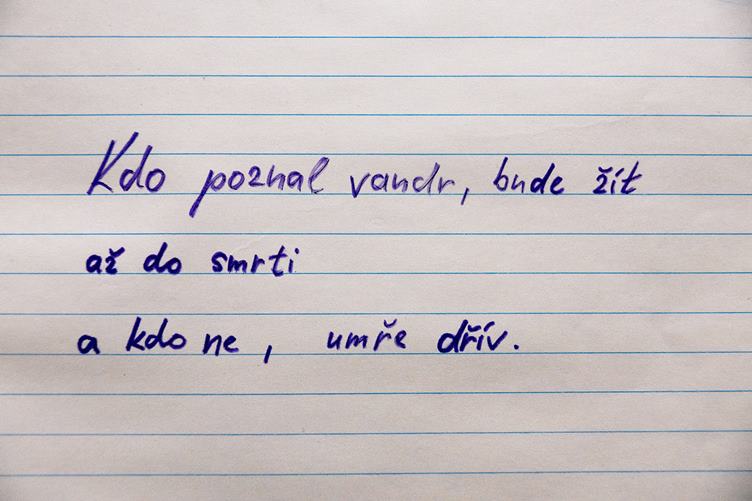 Kdo poznal vandr, bude žít
až do smrti
a kdo ne, umře dřív.